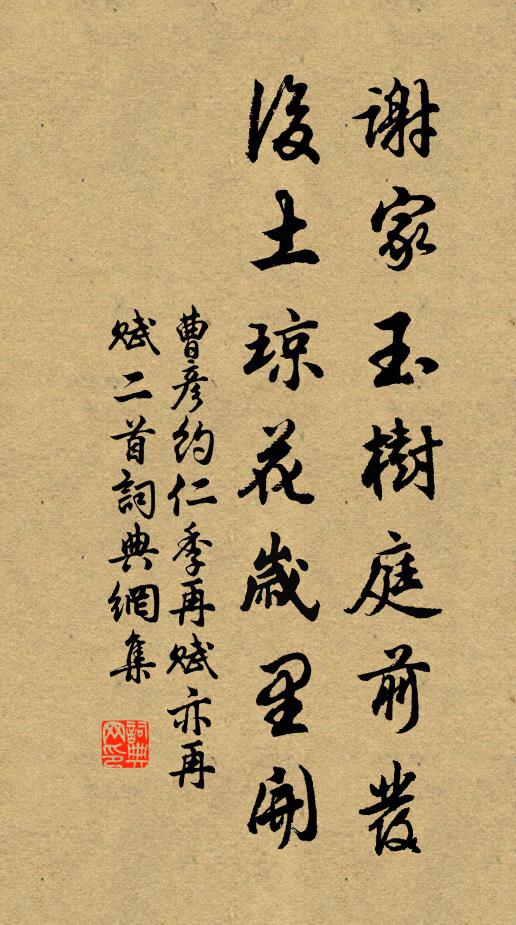 謝家玉樹庭前發
後土瓊花歲里開
曹彥約仁季再賦亦再
賦二首詞典網集
詞典
网印